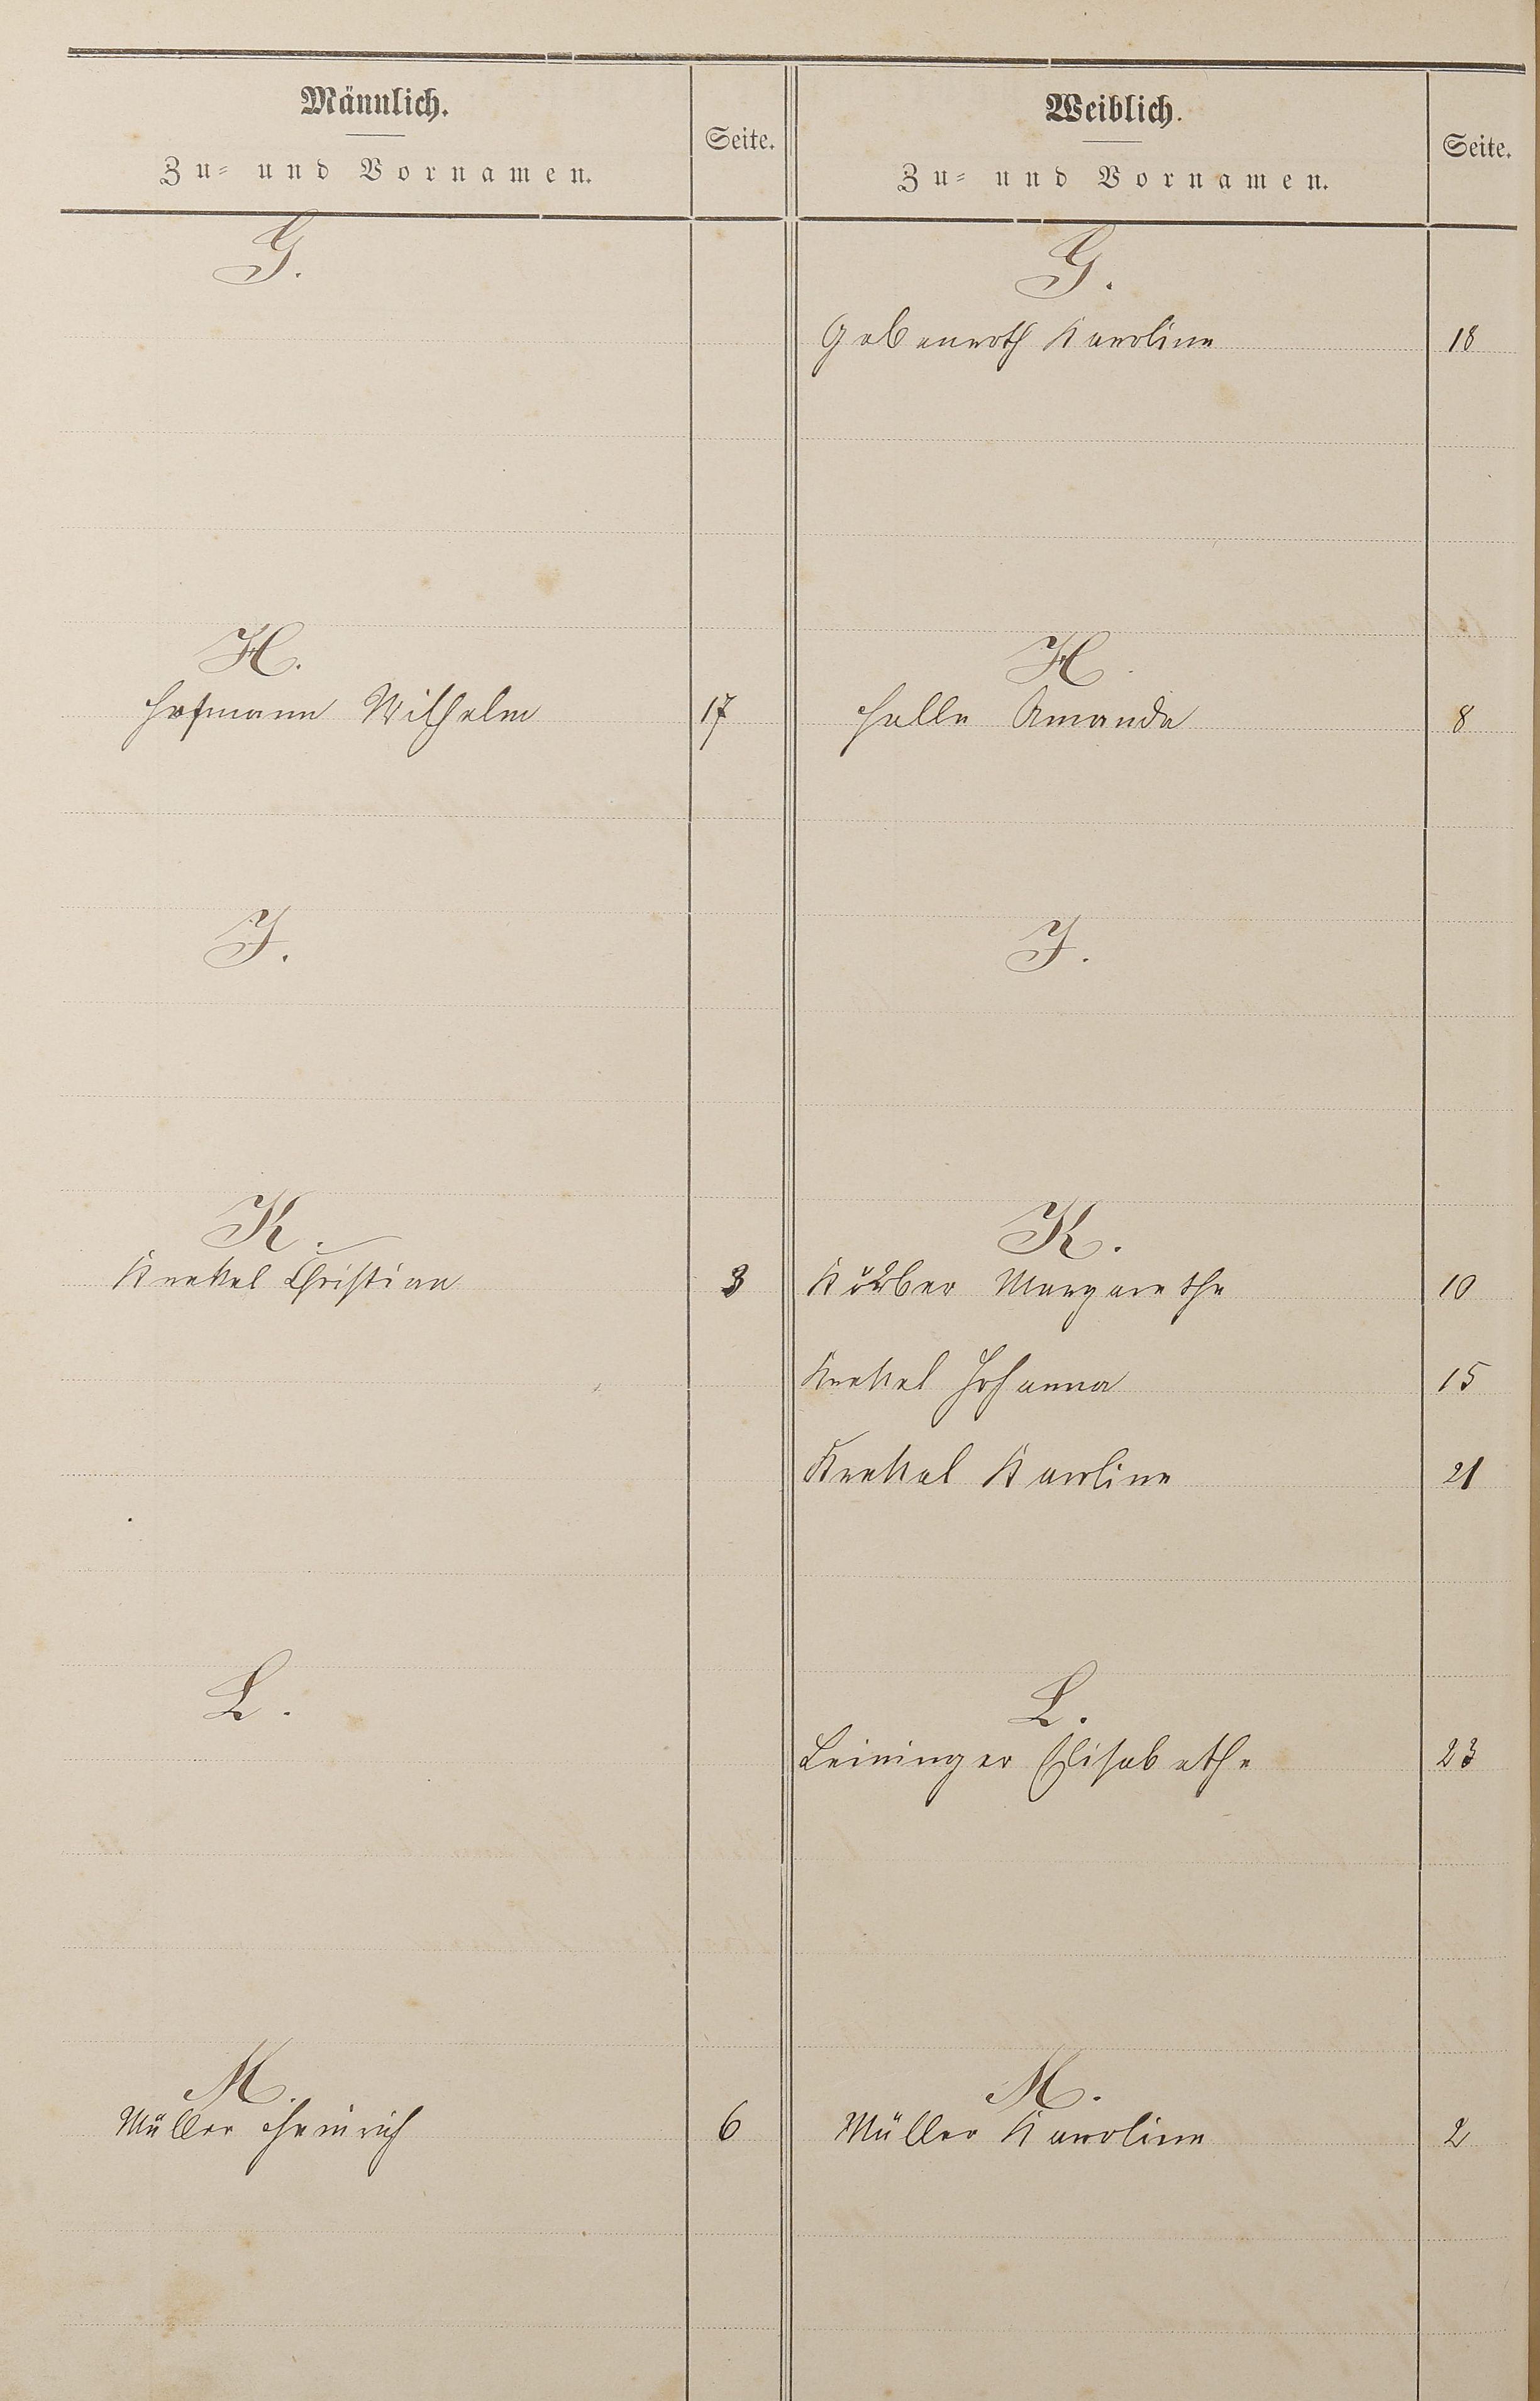 Männlich.
Zu- und Vornamen.
Seite.
Weiblich.
Zu- und Vornamen.
Seite.
G.
G.
Gebenroth Karoline 18
H.
H.
Hofmann Wilhelm 17
Halle Amanda 8
J.
J.
K.
K.
Krekel Christian 3
Körber Margarethe 10
Krekel Johanna 15
Krekel Karoline 21
L.
L.
Leininger Elisabethe 23
M.
M.
Müller Heinrich 6
Müller Karoline 2